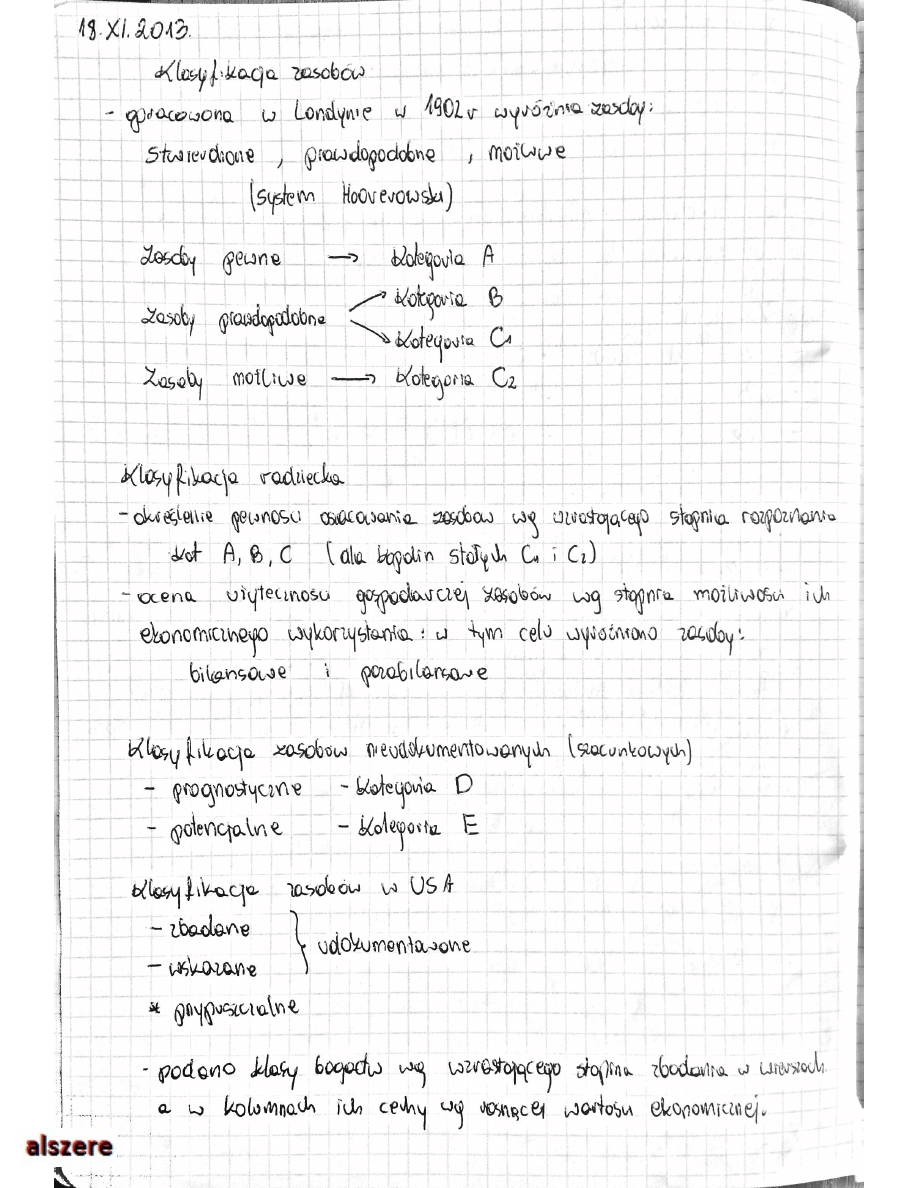 18.XI.2013.
Klasyfikacja zasobów
- opracowana w Londynie w 1902r wyróżnia zasoby:
stwierdzone, prawdopodobne, możliwe
(system Hooverowski)
Zasoby pewne → Kategoria A
Zasoby prawdopodobne → Kategoria B
→ Kategoria C1
Zasoby możliwe → Kategoria C2
Klasyfikacja radziecka
- określenie pewności oszacowania zasobów wg wzrastającego stopnia rozpoznania
kat A, B, C (dla kopalin stałych C1 i C2)
- ocena użyteczności gospodarczej zasobów wg stopnia możliwości ich
ekonomicznego wykorzystania: w tym celu wyróżniono zasoby:
bilansowe i pozabilansowe
Klasyfikacja zasobów nieudokumentowanych (szacunkowych)
- prognostyczne - Kategoria D
- potencjalne - Kategoria E
Klasyfikacja zasobów w USA
- zbadane
} udokumentowane
- wskazane
* przypuszczalne
- podano klasy bogactw wg wzrastającego stopnia zbadania w wierszach
a w kolumnach ich cechy wg rosnącej wartości ekonomicznej.
alszere